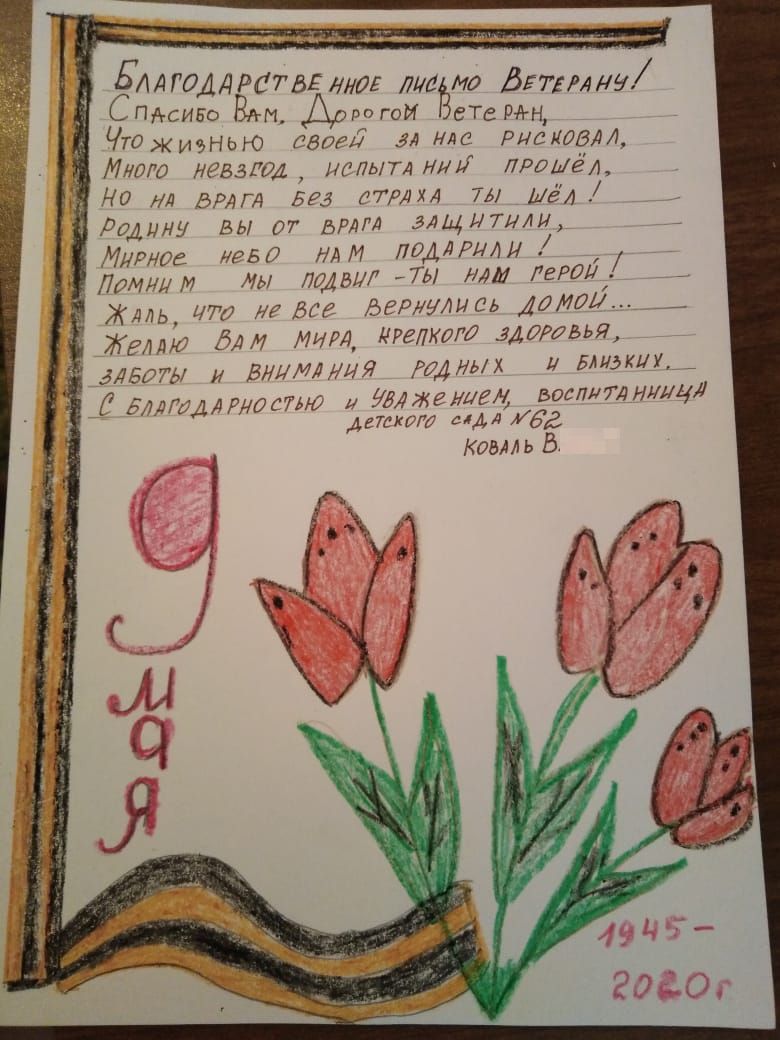 Благодарственное письмо Ветерану!
Спасибо Вам, Дорогой Ветеран,
Что жизнью своей за нас рисковал,
Много невзгод, испытаний прошёл,
Но на врага без страха ты шёл!
Родину вы от врага защитили,
Мирное небо нам подарили!
Помним мы подвиг - ты наш герой!
Жаль, что не все вернулись домой...
Желаю Вам мира, крепкого здоровья,
заботы и внимания родных и близких.
С благодарностью и уважением, воспитанница
детского сада №62
Коваль В.
9
мая
1945-
2020г